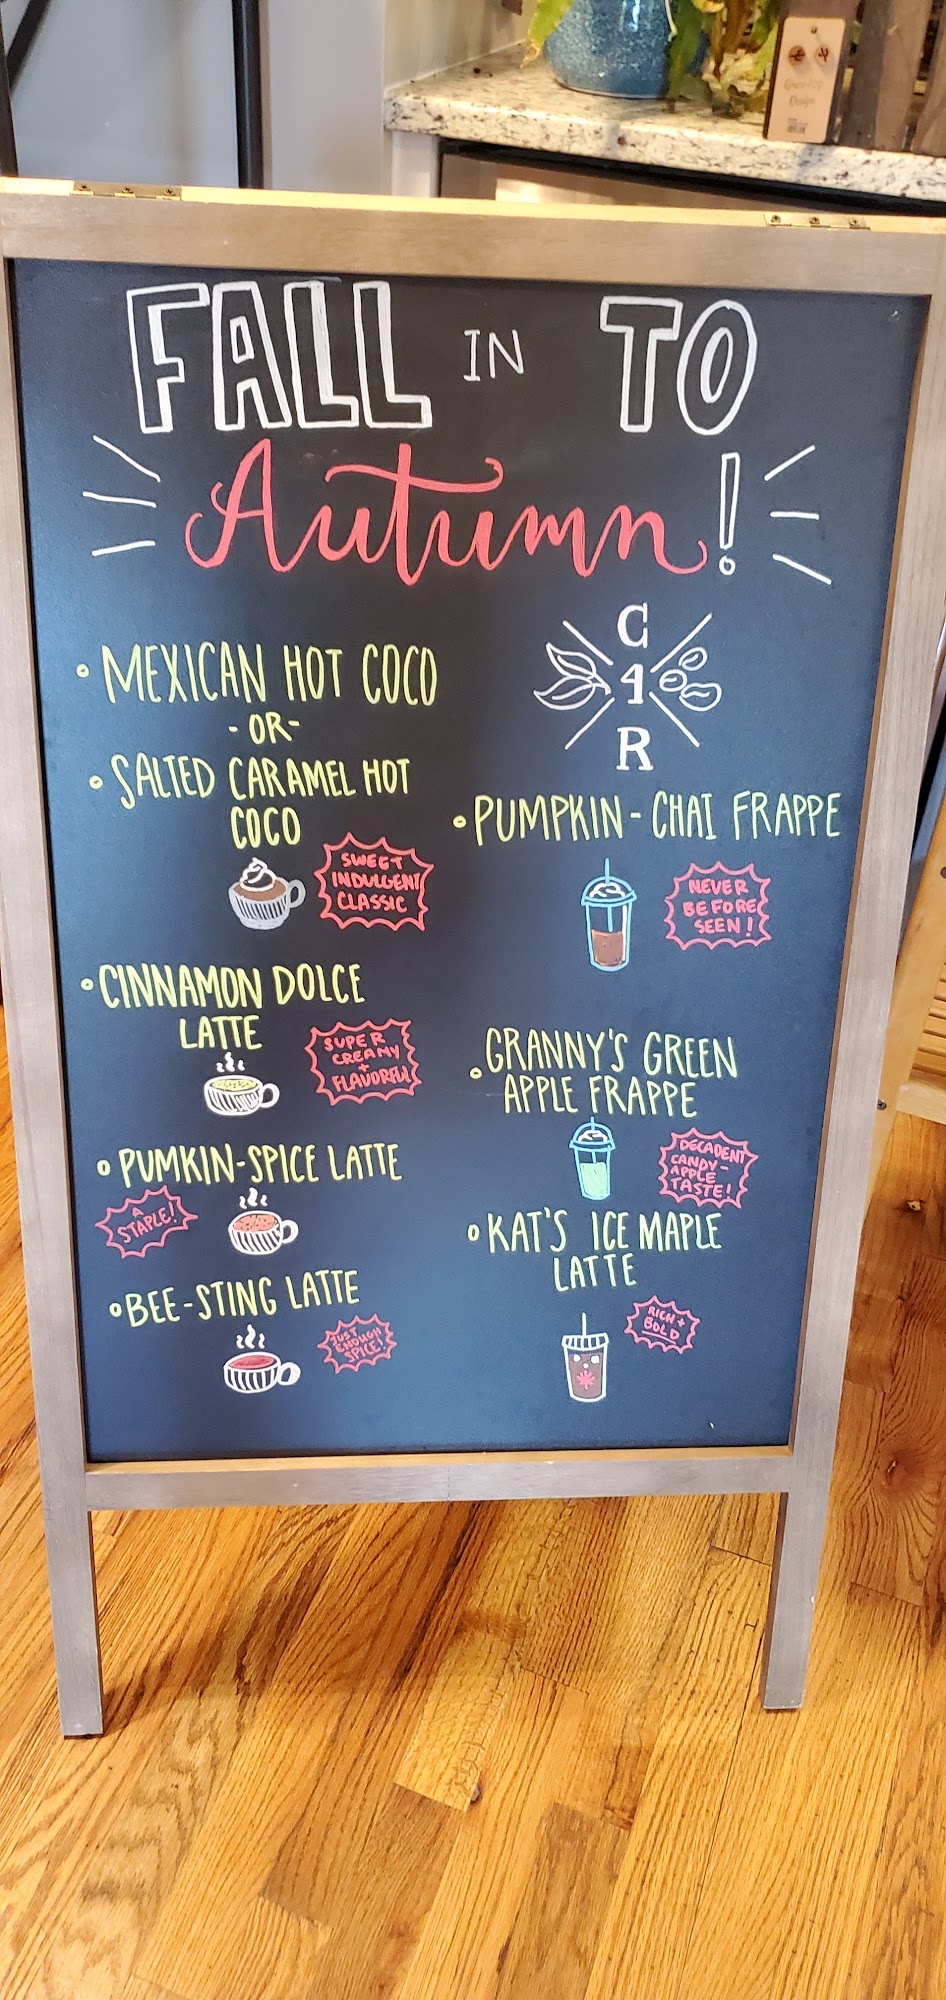 FALL IN TO
Autumn!
• MEXICAN HOT COCO
-OR-
• SALTED CARAMEL HOT
COCO
SWEET
INDULGENT
CLASSIC
• CINNAMON DOLCE
LATTE
SUPER
CREAMY
+
FLAVORFUL
• PUMKIN-SPICE LATTE
A
STAPLE!
• BEE-STING LATTE
JUST
ENOUGH
SPICE!
C
4
R
• PUMPKIN-CHAI FRAPPE
NEVER
BEFORE
SEEN!
• GRANNY'S GREEN
APPLE FRAPPE
DECADENT
CANDY-
APPLE
TASTE!
• KAT'S ICE MAPLE
LATTE
RICH +
BOLD